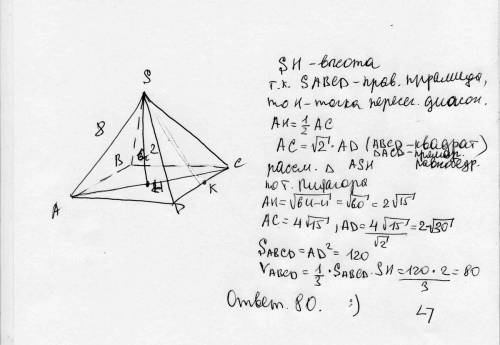 S
8
2
B
C
H
K
A
D
SH - высота
т.к. SABCD - прав. пирамида,
то H - точка перес. диагон.
AH = 1/2 AC
AC = √2 · AD (ABCD - квадрат)
ΔACD - прямоуг.
равнобедр.
рассм. Δ ASH
по т. Пифагора
AH = √64-4 = √60 = 2√15
AC = 4√15, AD = 4√15/√2 = 2√30
SABCD = AD² = 120
VABCD = 1/3 · SABCD · SH = 120·2/3 = 80
Ответ. 80. :)